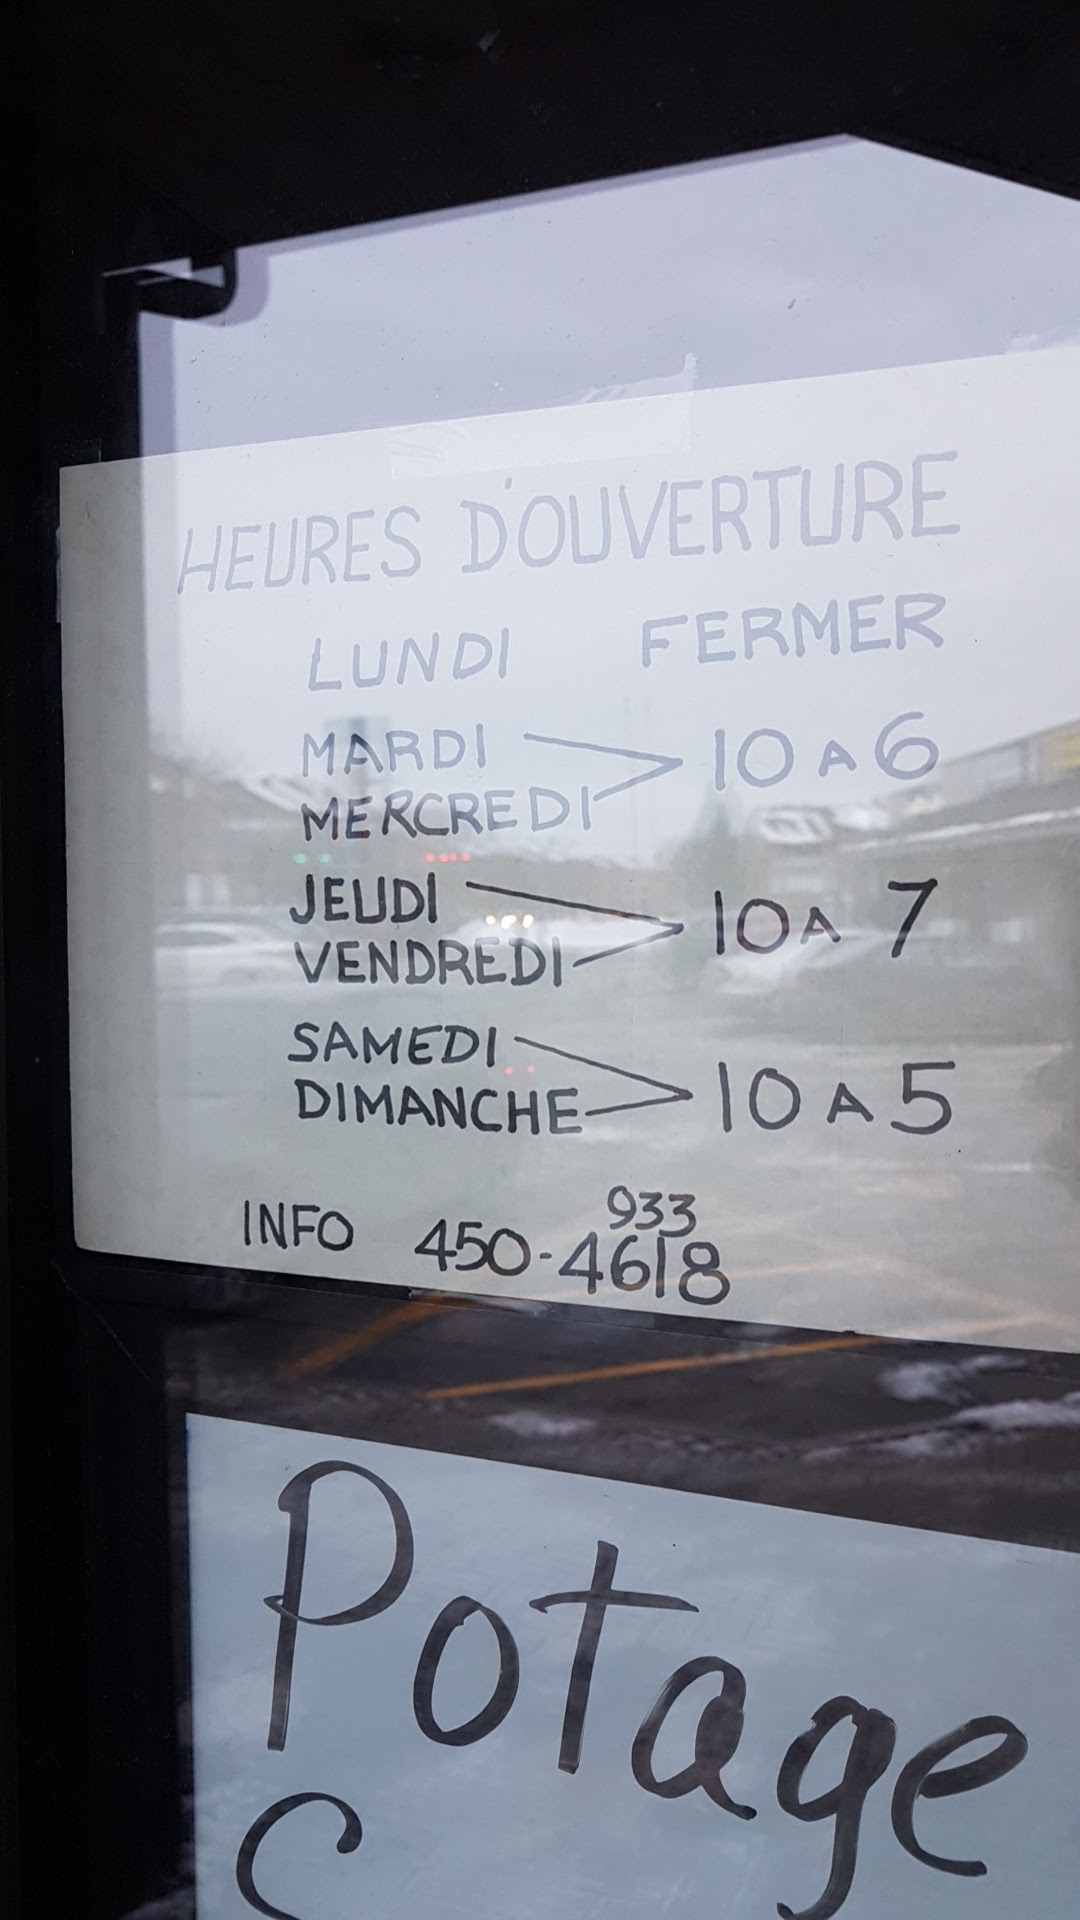 HEURES D'OUVERTURE
LUNDI FERMER
MARDI
MERCREDI 10 A 6
JEUDI
VENDREDI 10 A 7
SAMEDI
DIMANCHE 10 A 5
933
INFO 450-4618
Potage